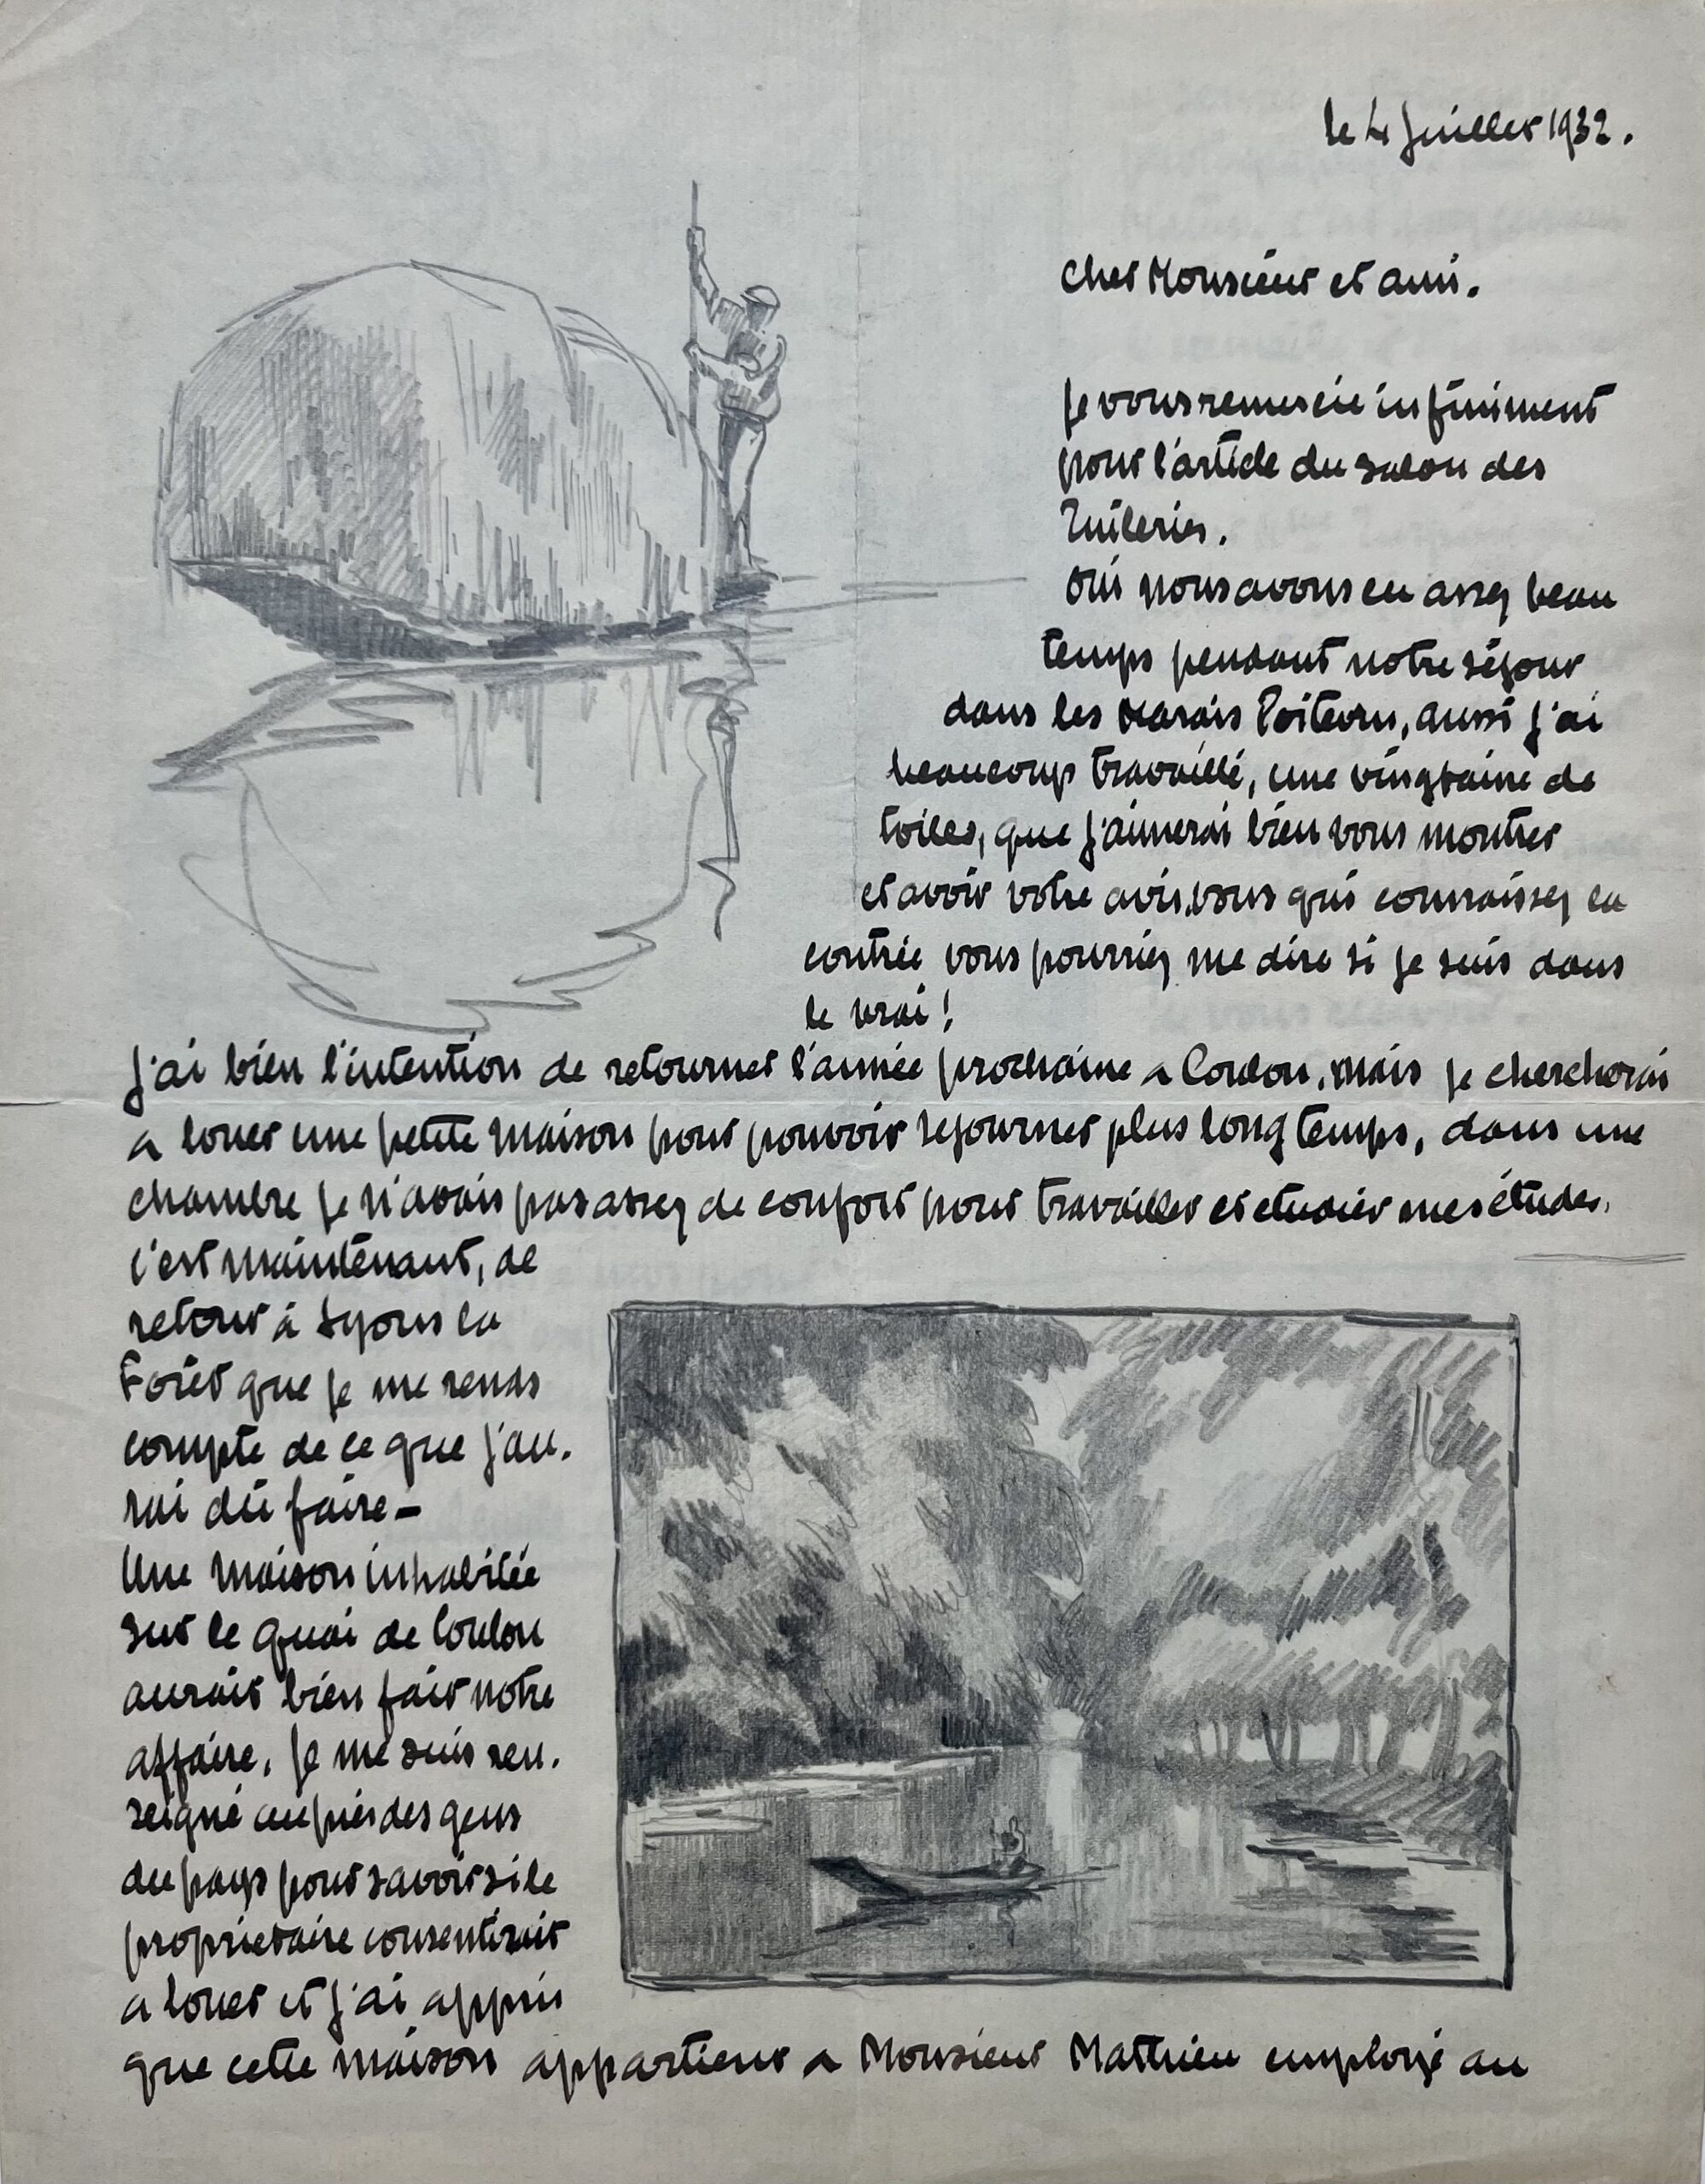 le 4 Juillet 1932.
Cher Monsieur et ami.
Je vous remercie infiniment
pour l'article du salon des
Tuileries.
Oui nous avons eu assez beau
temps pendant notre séjour
dans les Marais Poitevin, aussi j'ai
beaucoup travaillé, une vingtaine de
toiles, que j'aimerai bien vous montrer
et avoir votre avis, vous qui connaissez la
contrée vous pourriez me dire si je suis dans
le vrai !
J'ai bien l'intention de retourner l'année prochaine a Coulon, mais je chercherai
a louer une petite maison pour pouvoir sejourner plus longtemps, dans une
chambre je n'avais pas assez de confort pour travailler et etudier mes études,
c'est maintenant, de
retour à Lyons la
Forêt que je me rends
compte de ce que j'au-
rai dû faire –
Une maison inhabitée
sur le quai de Coulon
aurait bien fait notre
affaire, je me suis ren-
seigné auprès des gens
du pays pour savoir si le
propriétaire consentirait
a louer et j'ai appris
que cette maison appartient a Monsieur Mathieu employé au